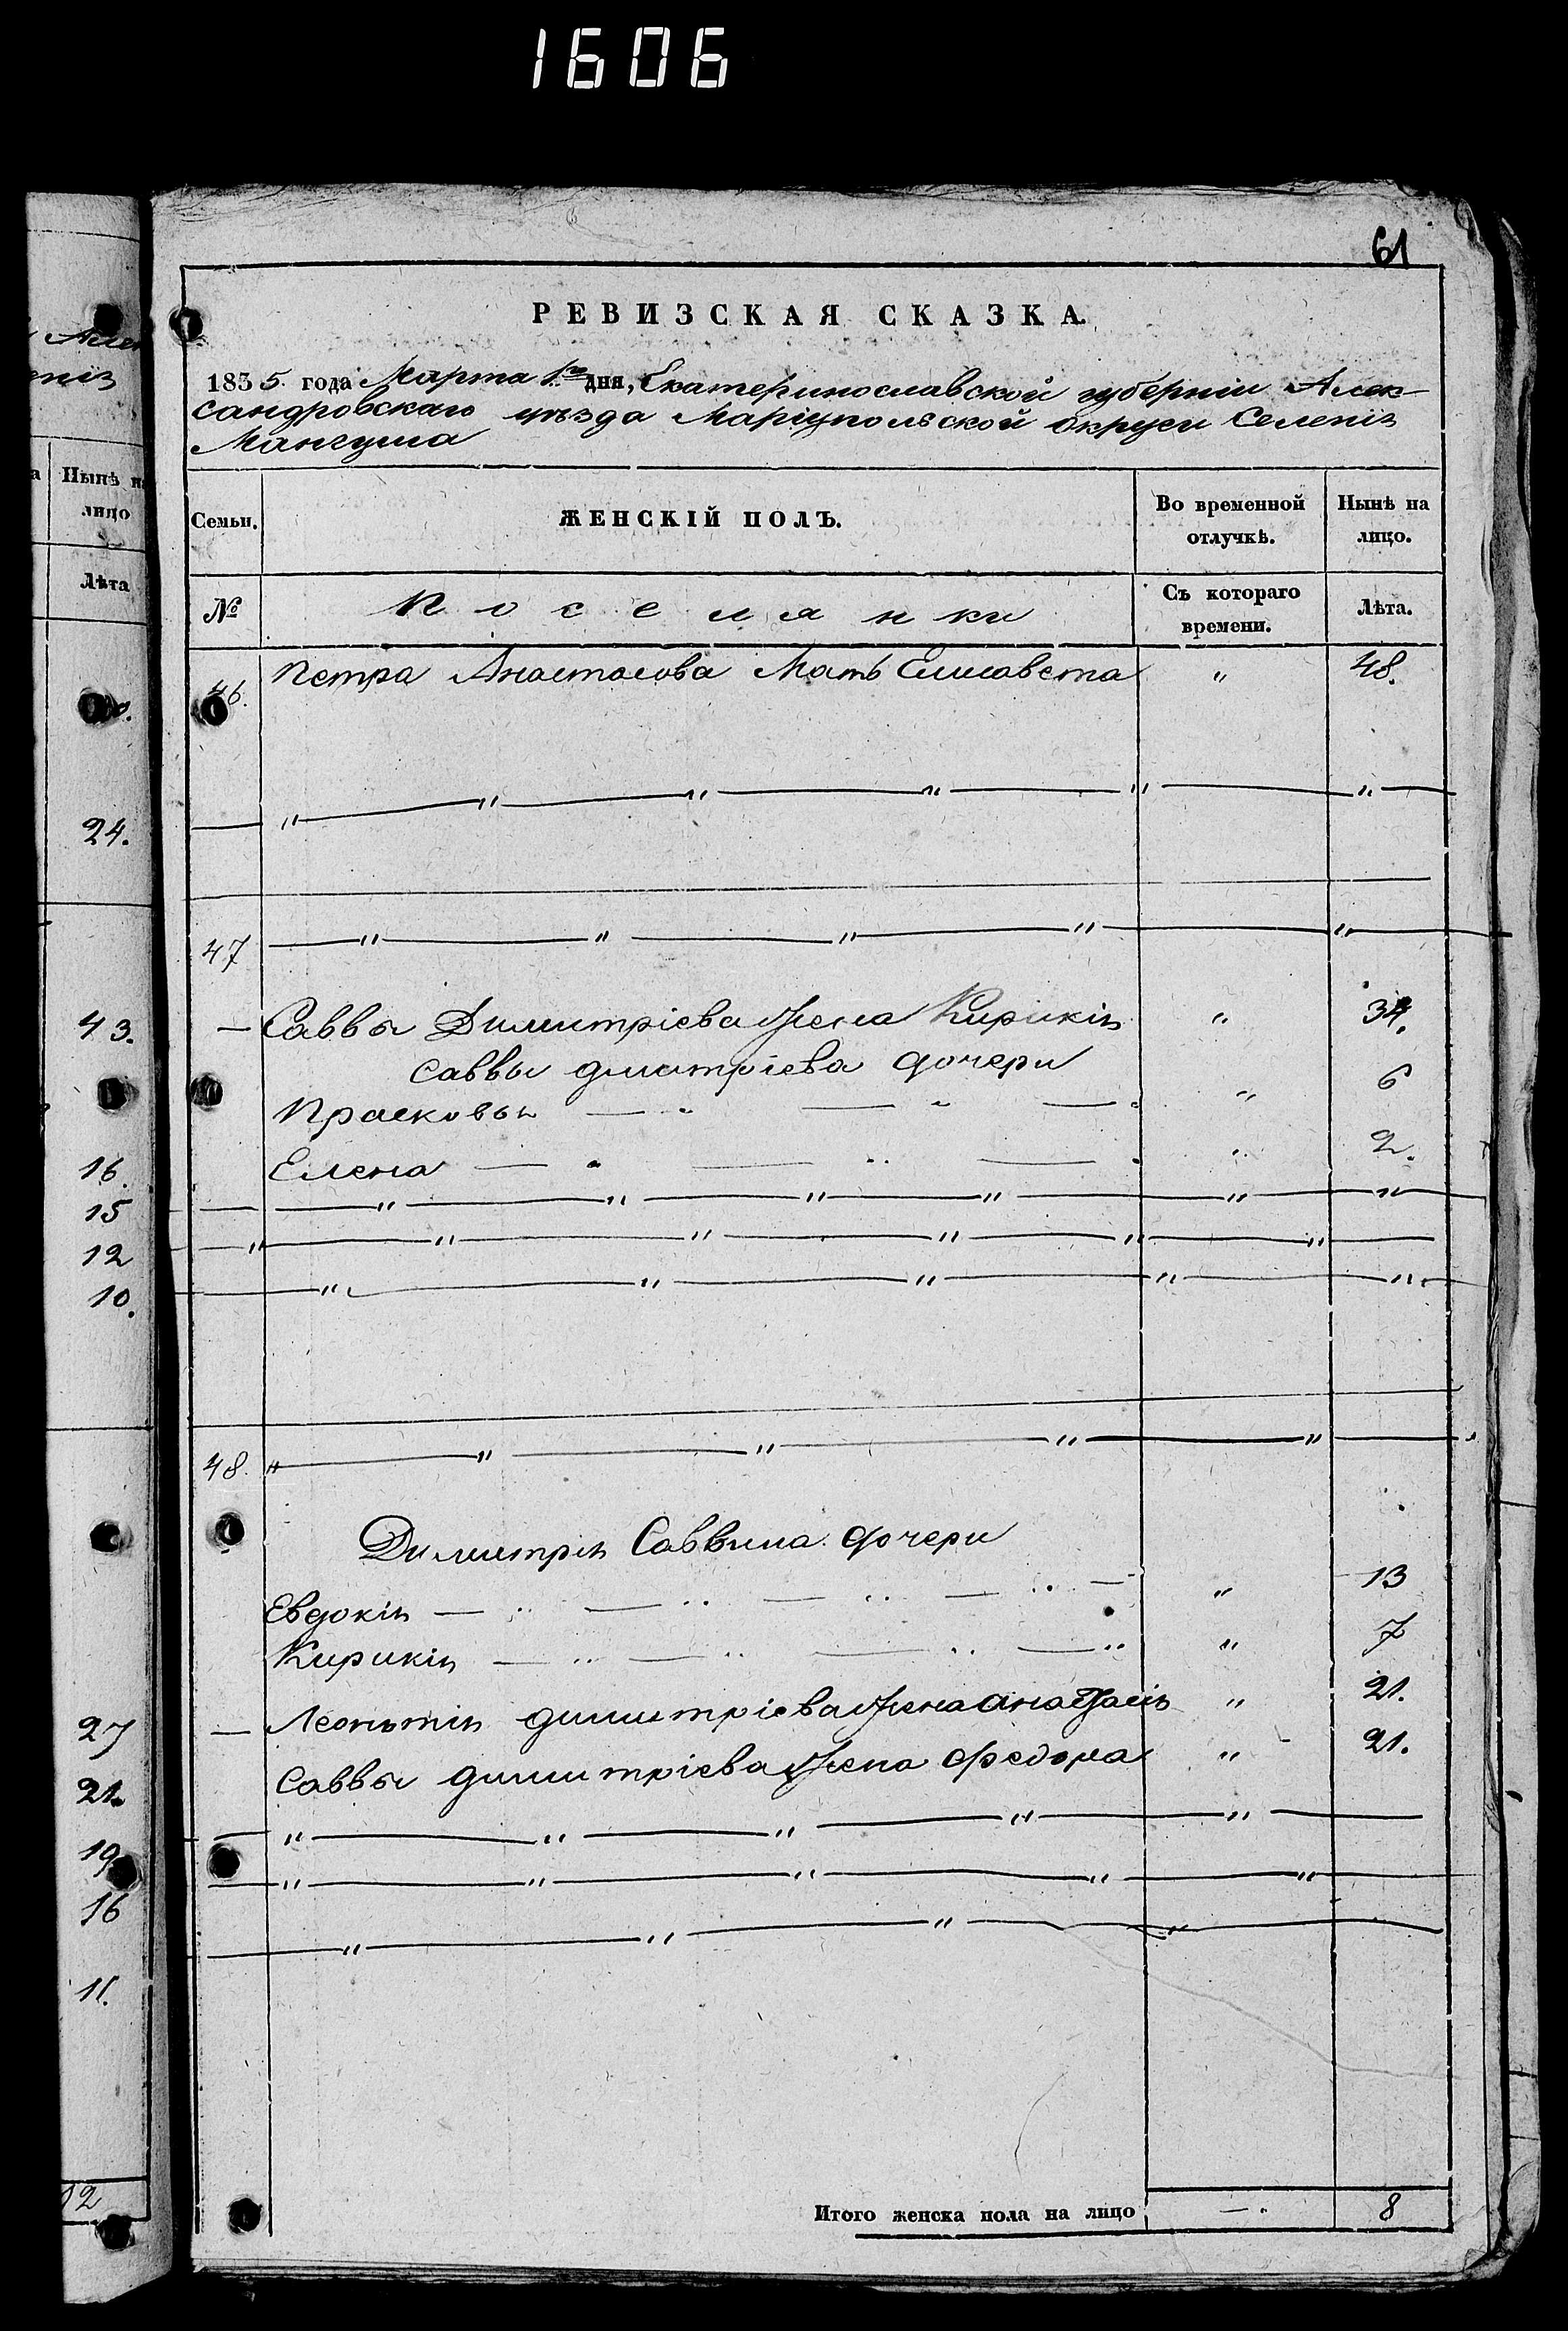 1606
61
РЕВИЗСКАЯ СКАЗКА.
1835 года Марта 1го дня, Екатеринославской губерніи Алек-
сандровскаго уѣзда Маріупольской округи Селенія
Мангуша
Семьи.
ЖЕНСКІЙ ПОЛЪ.
Во временной отлучкѣ.
Нынѣ на лицо.
№
Поселянки
Съ котораго времени.
Лѣта.
46. Петра Анастасова Мать Елисавета " 48.
47
— Саввы Димитріева жена Кирикія " 34.
Саввы димитріева дочери
Прасковья " 6
Елена " 2.
48.
Димитрія Саввина дочери
Евдокія " 13
Кирикія " 7
— Леонтія димитріева жена анастасія " 21.
Саввы димитріева жена Федора " 21.
Итого женска пола на лицо — 8
Нынѣ на
лицо
Лѣта
24.
43.
16.
15
12
10.
27
21.
19
16
11.
12